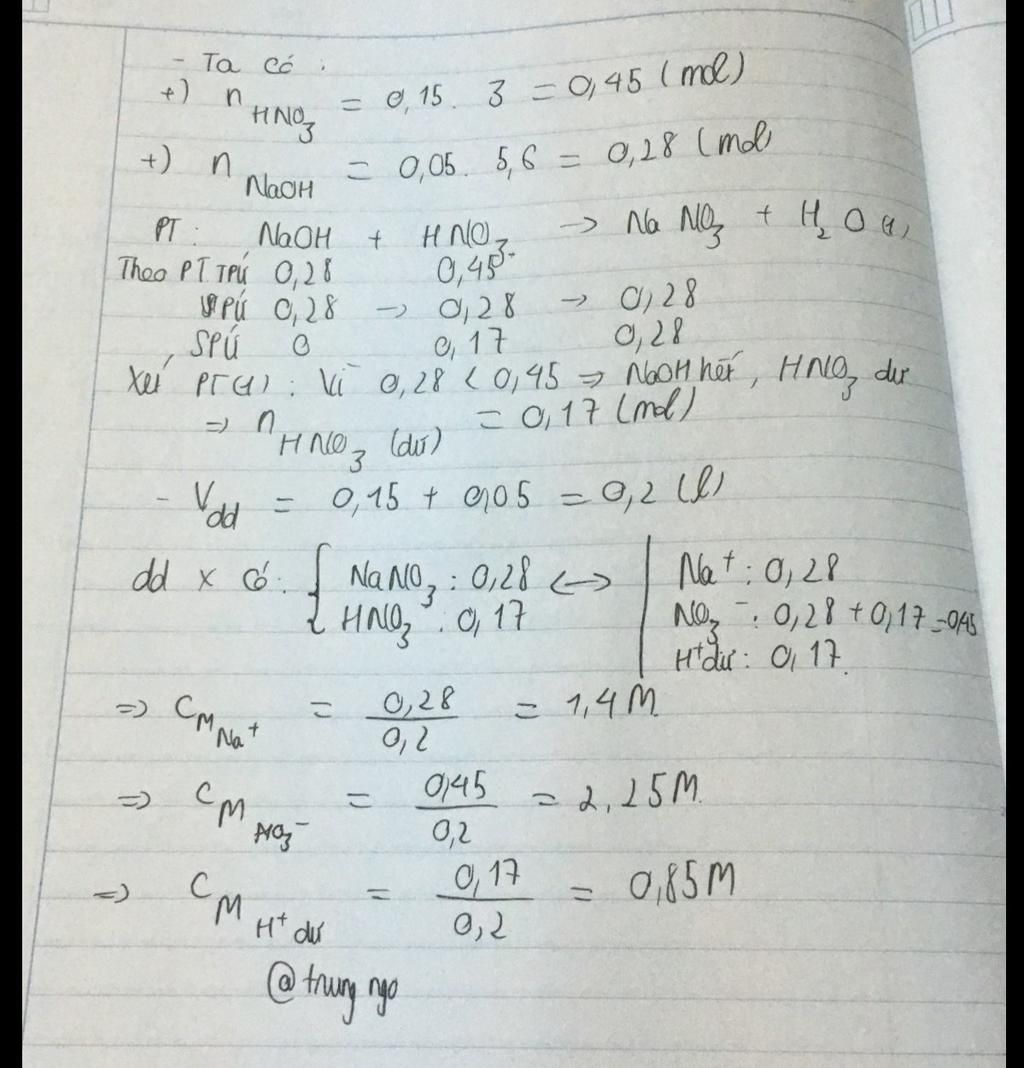 - Ta có :
+) n HNO3 = 0,15 . 3 = 0,45 (mol)
+) n NaOH = 0,05 . 5,6 = 0,28 (mol
PT: NaOH + HNO3 -> NaNO3 + H2O (1)
Theo PT TPỨ 0,28 0,45
PỨ 0,28 -> 0,28 -> 0,28
SPỨ 0 0,17 0,28
Xét PT(1) : Vì 0,28 < 0,45 => NaOH hết, HNO3 dư
=> n HNO3 (dư) = 0,17 (mol)
- Vdd = 0,15 + 0,05 = 0,2 (l)
dd x có: { NaNO3 : 0,28 <-> | Na+ : 0,28
HNO3 : 0,17 NO3- : 0,28 + 0,17 = 0,45
H+ dư : 0,17.
=> CM Na+ = 0,28 / 0,2 = 1,4 M
=> CM NO3- = 0,45 / 0,2 = 2,25 M.
=> CM H+ dư = 0,17 / 0,2 = 0,85 M
@trung ngo